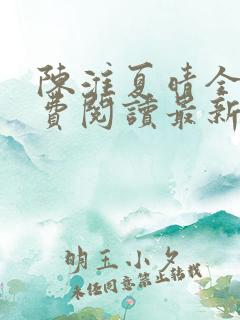 陳淮夏晴全
費閱讀最新
明玉小夕
未经同意禁止转载